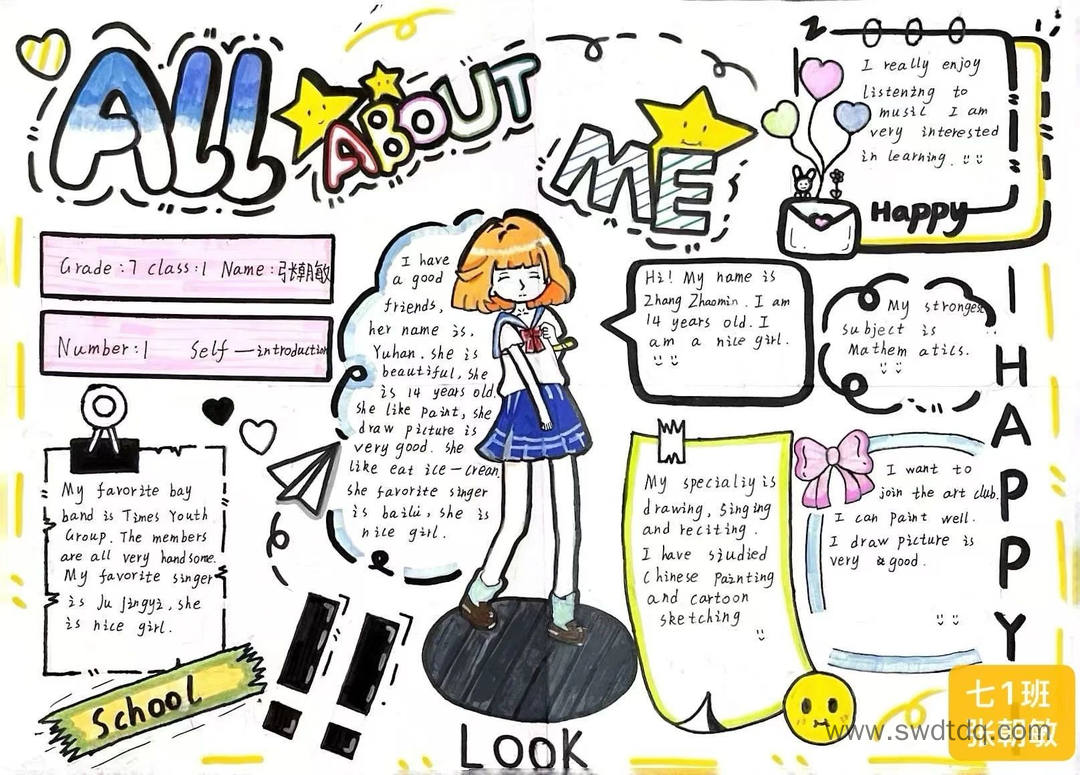 ALL ABOUT ME
I really enjoy
listening to
music I am
very interested
in learning.
Happy
Grade:7 class:1 Name:张朝敏
Number:1 Self—introduction
I have
a good
friends,
her name is.
Yuhan. she is
beautiful, she
is 14 years old.
She like paint, she
draw picture is
very good. she
like eat ice-crean.
She favorite singer
is bailu, she is
nice girl.
Hi! My name is
Zhang Zhaomin. I am
14 years old. I
am a nice girl.
My strongest
subject is
Mathem atics.
I HAPPY
My favorite bay
band is Times Youth
Group. The members
are all very handsome.
My favorite singer
is Ju Jingyi, she
is nice girl.
My specialiy is
drawing, singing
and reciting.
I have siudied
Chinese Painting
and cartoon
sketching
I want to
join the art club.
I can paint well.
I draw picture is
very good.
School
!!
LOOK
七1班
张朝敏
www.swdtdq.com